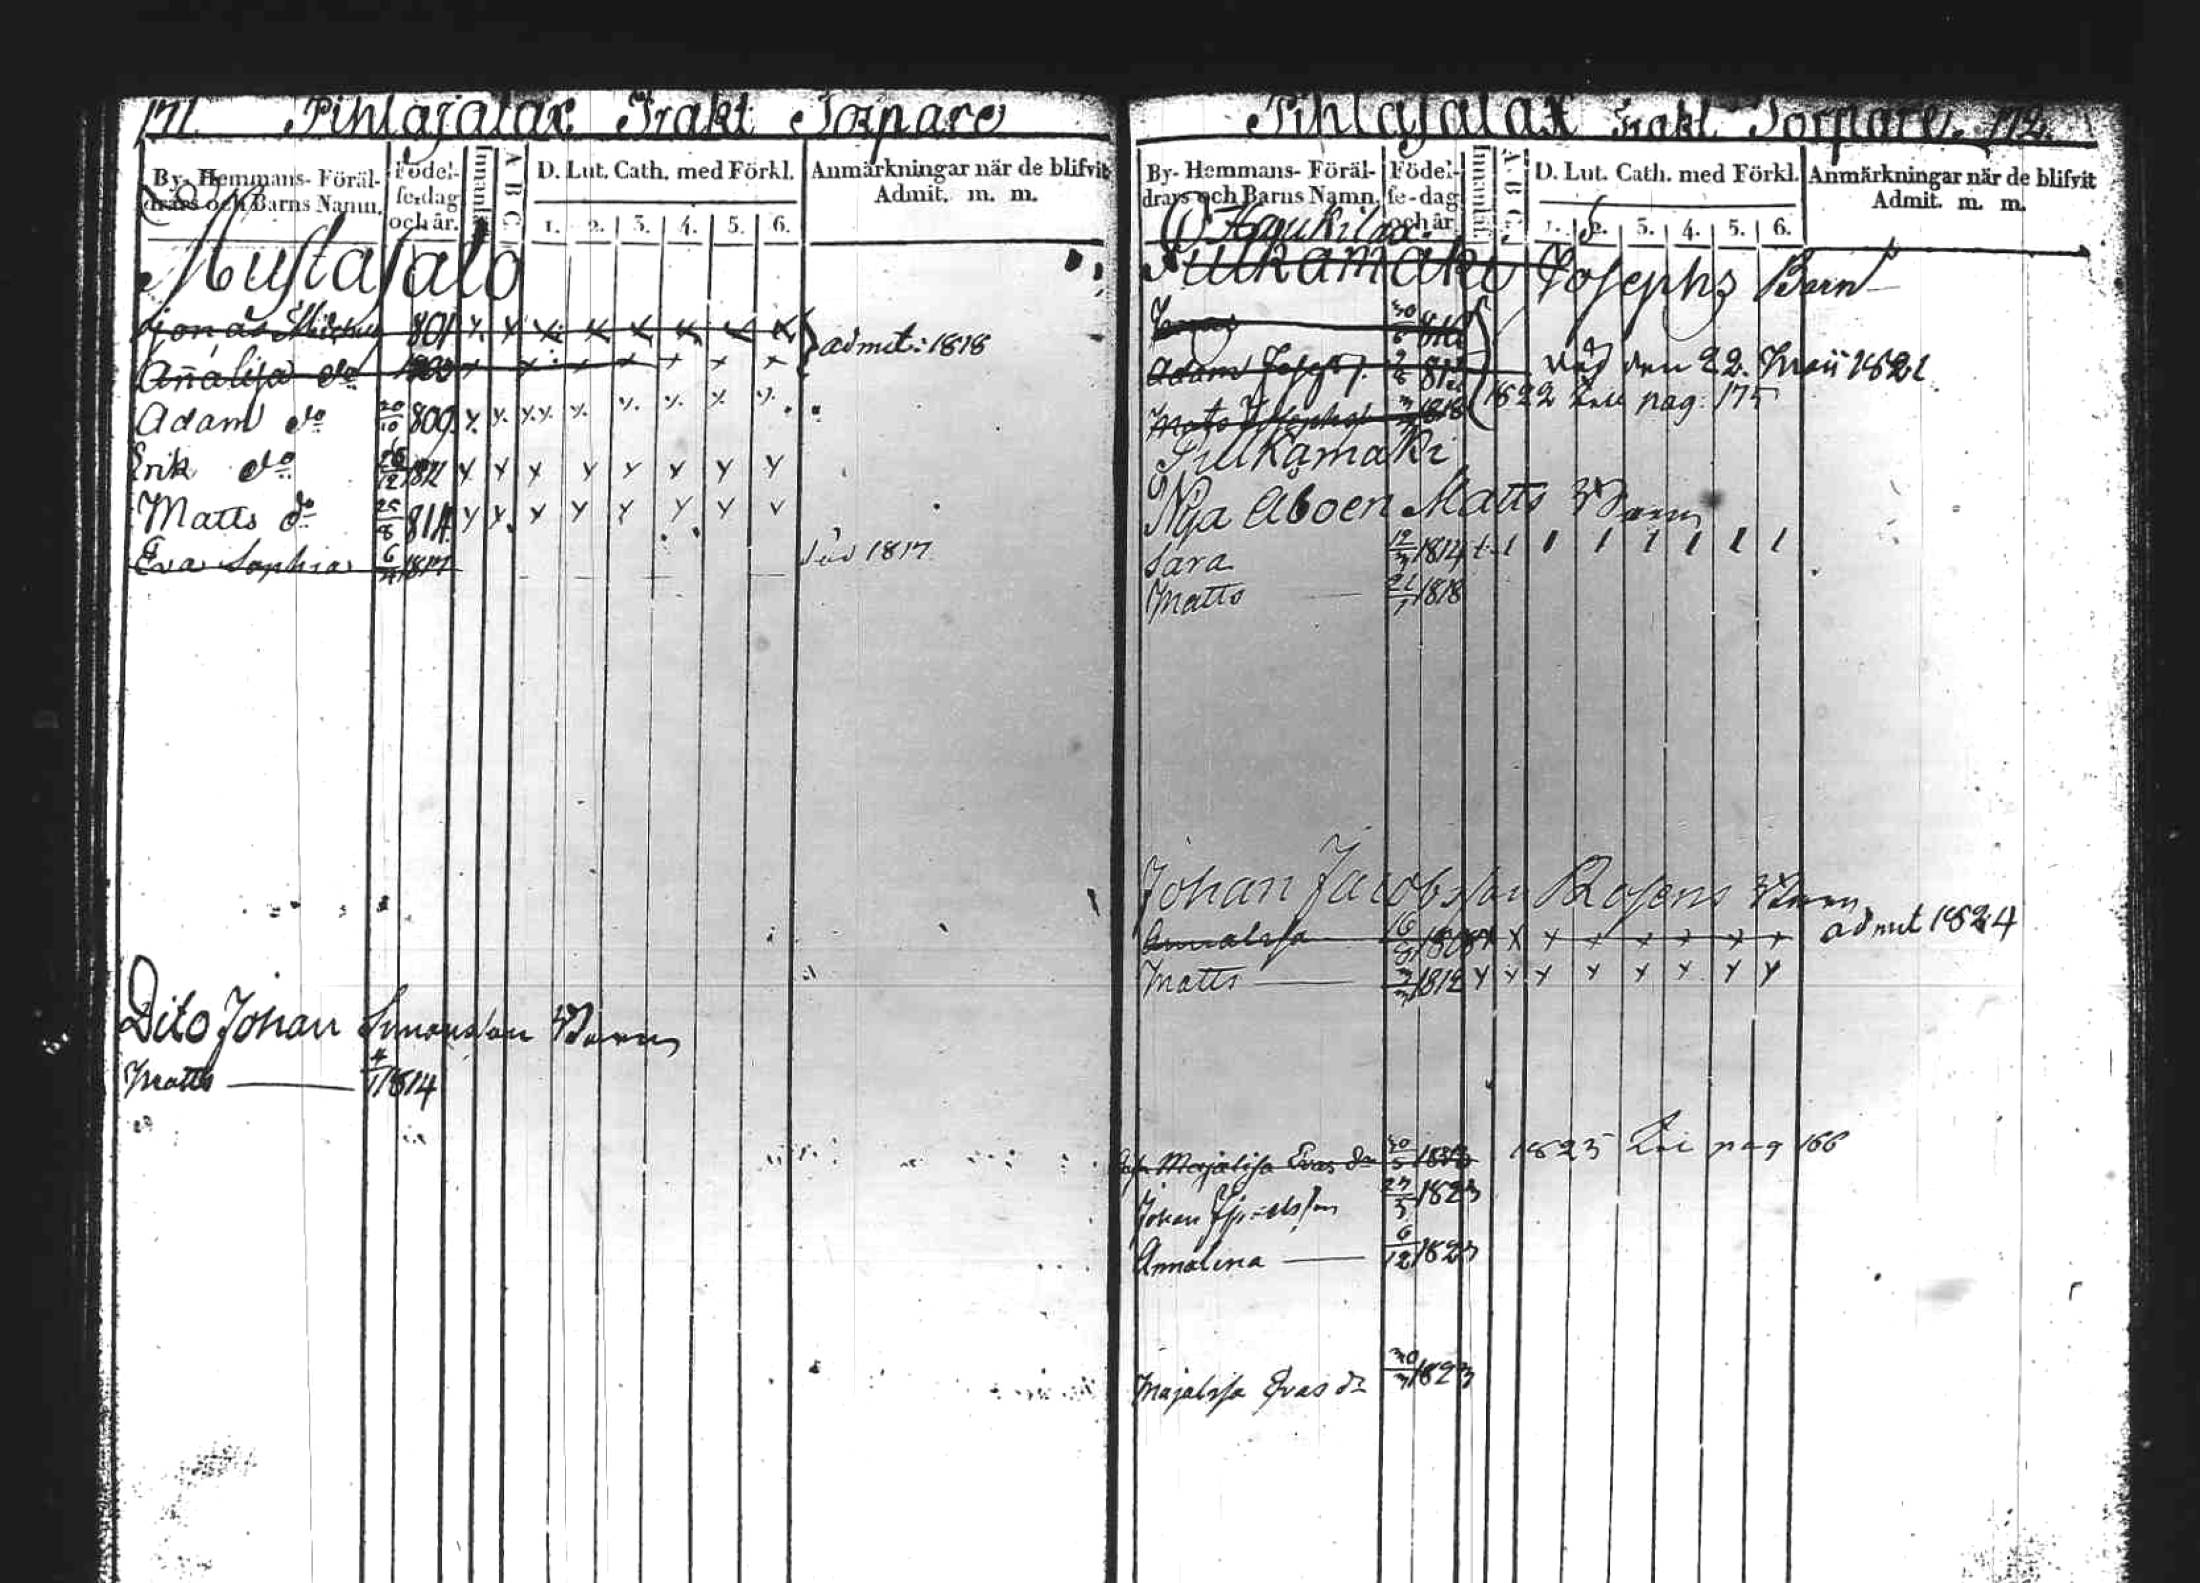 171. Pihlajalax Trakt Torpare
By- Hemmans- Föräl-
drars och Barns Namn.
Födel-
se-dag
och år.
Innanläs.
A B C.
D. Lut. Cath. med Förkl.
1. 2. 3. 4. 5. 6.
Anmärkningar när de blifvit
Admit. m. m.
Mustasalo
Jonas 801 x x x x x x x x
admit: 1818
Añalisa do x x x x x x x
Adam do 20/10 809. x x x x x x x x
Erik do 12 x x x x x x x x
Matts do 25/8 814. x x x x x x x x
Eva Sophia 6 1817 död 1817
Dito Johan Simonsson Barn
Matts 4/1 1814
Pihlajalax Trakt Torpare. 172.
By- Hemmans- Föräl-
drars och Barns Namn.
Födel-
se-dag
och år
Innanläs.
A. B C.
D. Lut. Cath. med Förkl.
1. 2. 3. 4. 5. 6.
Anmärkningar när de blifvit
Admit. m. m.
Haukilax
Pulkamäki Josephs Barn
30/6
Adam Joseph
den 22. Maii 1821
Mats 1818 1822 pag. 175
Pulkamäki
Nya Aboen Matts Barn
Sara 12/3 1814 1 1 1 1 1 1 1
Matts 21/1 1818
Johan Jacobsson Rosens Barn
Annalisa 16 1808 x x x x x x x x admit 1824
Matts 1812 x x x x x x x x
Majalisa Evas dr 30 1825 pag 166
Johan 1823
Annalena 6/12 1823
Majalisa Evas dr 30/3 1823